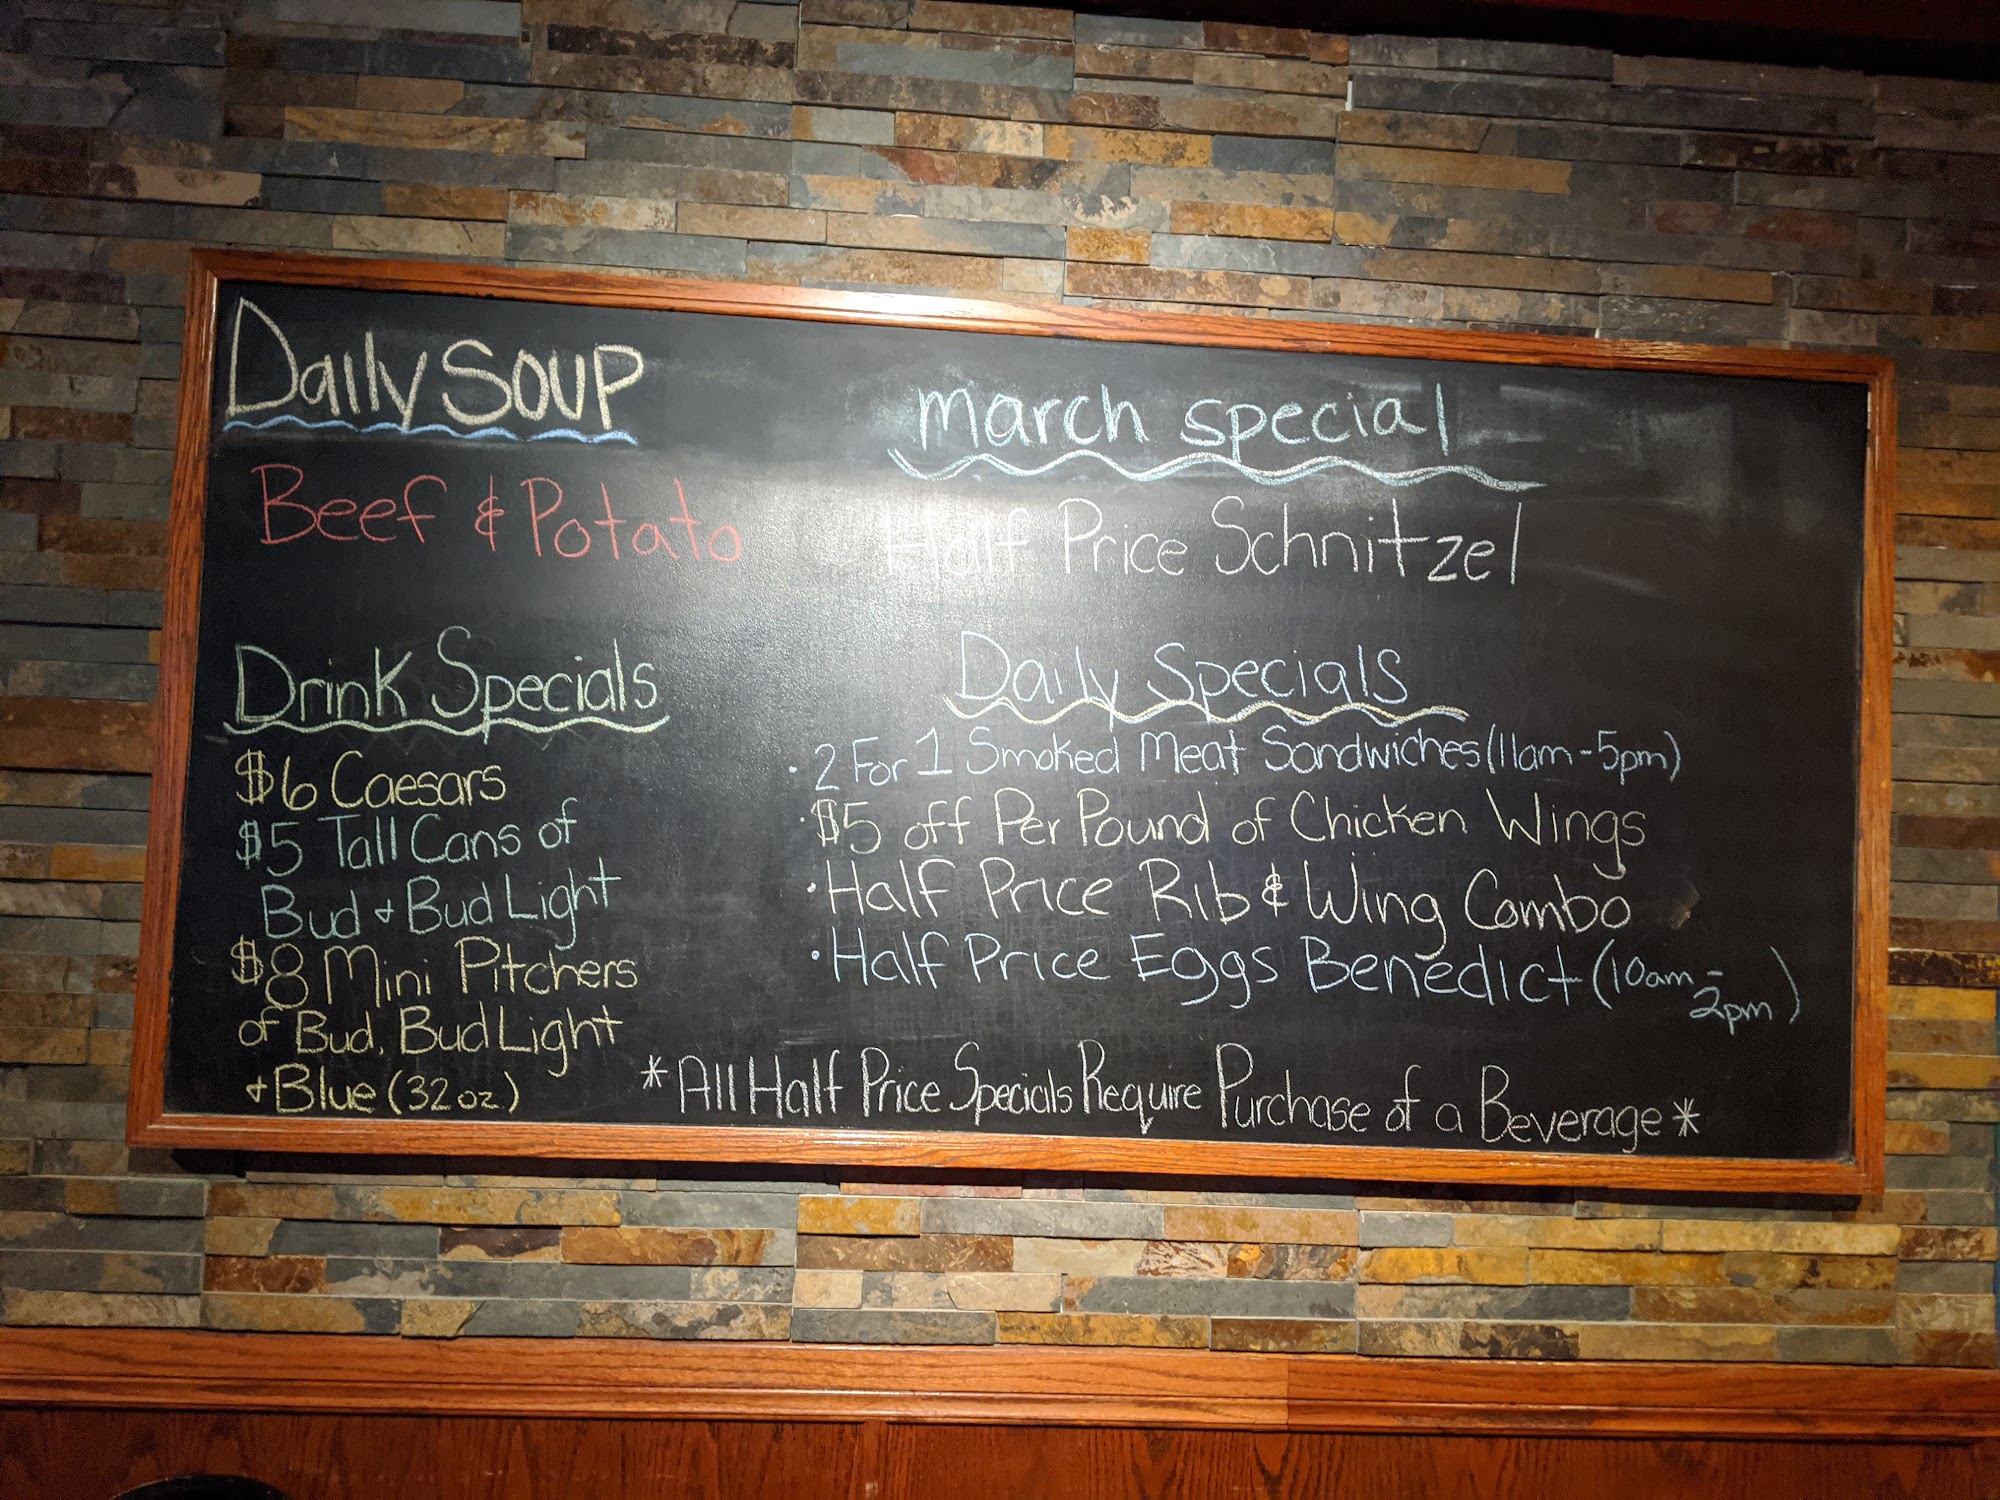 Daily SOUP
Beef & Potato
Drink Specials
$6 Caesars
$5 Tall Cans of
Bud + Bud Light
$8 Mini Pitchers
of Bud, Bud Light
+ Blue (32oz)
march special
Half Price Schnitzel
Daily Specials
· 2 For 1 Smoked Meat Sandwiches (11am-5pm)
· $5 off Per Pound of Chicken Wings
· Half Price Rib & Wing Combo
· Half Price Eggs Benedict (10am-
2pm)
*All Half Price Specials Require Purchase of a Beverage*